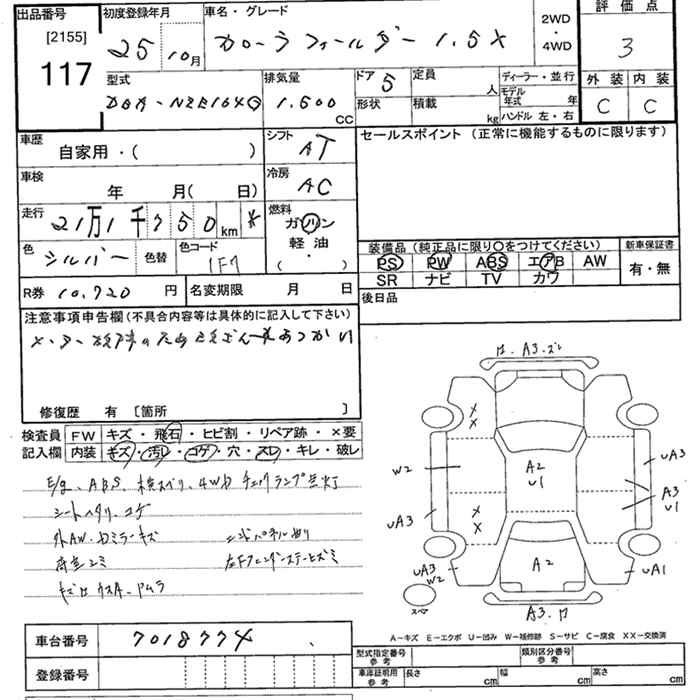 出品番号 初度登録年月 車名・グレード 2WD ・ 4WD 評価点
[2155] 117 25 10月 カローラフィールダー 1.5X 3
型式 排気量 ドア 5 定員 人 ディーラー・並行 外装 内装
DBA-NZE164G 1.500 CC 形状 積載 kg モデル年式 年 ハンドル 左・右 C C
車歴 自家用・( ) シフト AT セールスポイント (正常に機能するものに限ります)
車検 年 月( 日) 冷房 AC
走行 21万1千750km * 燃料 ガソリン 軽油 ・ ( )
色 シルバー 色替 色コード 1F7
装備品 (純正品に限り○をつけてください) 新車保証書
PS PW ABS エアB AW 有・無
SR ナビ TV カワ
R券 10.720 円 名変期限 月 日 後日品
注意事項申告欄 (不具合内容等は具体的に記入して下さい)
修復歴 有 [箇所 ]
検査員記入欄 FW キズ・飛石・ヒビ割・リペア跡・×要
内装 キズ・汚レ・コゲ・穴・スレ・キレ・破レ
E/g、ABS、横スベリ、4WD チェックランプ点灯
シートヘタリ、コゲ
外AW・ドミラーキズ
A3.ズレ
X X
W2 A2 U1 UA3
UA3 X X A3 U1
UA3 W2 A2 UA1
スペア
A3.ワ
A-キズ E-エクボ U-凹み W-補修跡 S-サビ C-腐食 XX-交換済
車台番号 7018774
登録番号
型式指定番号 参考 類別区分番号 参考
車庫証明用 参考 長さ cm 幅 cm 高さ cm